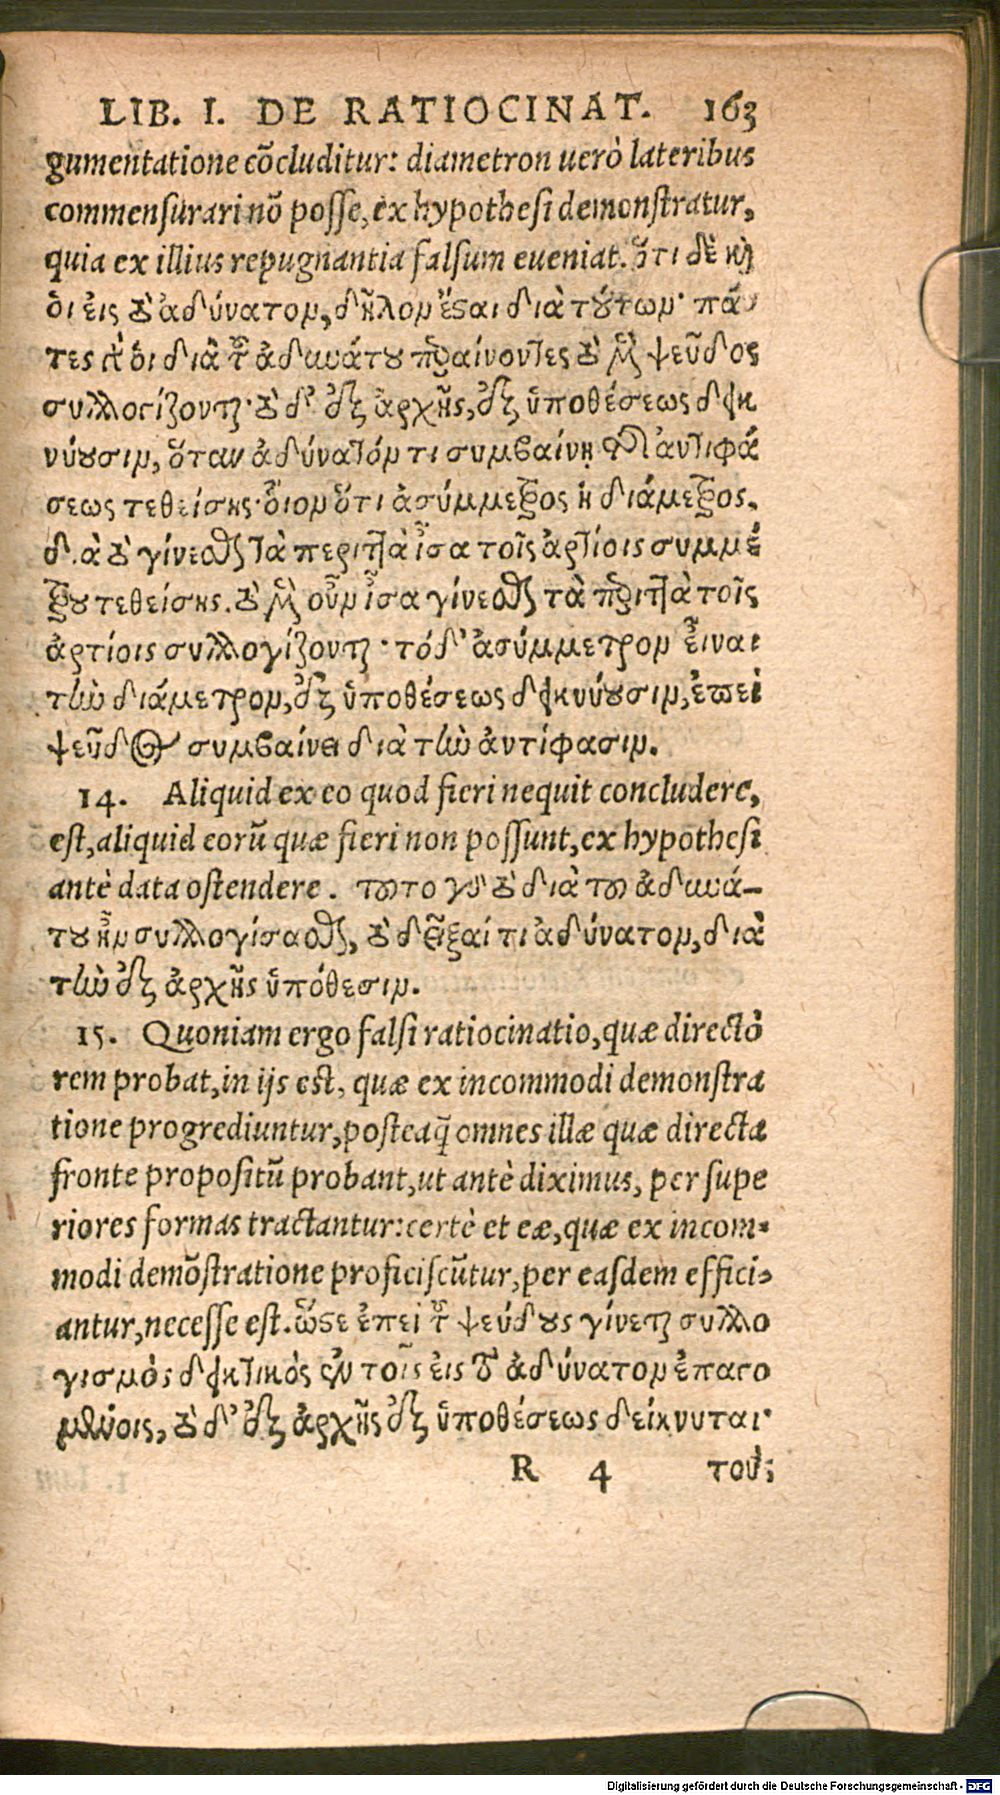 LIB. I. DE RATIOCINAT. 163
gumentatione cõcluditur: diametron uerò lateribus
commensurari nõ posse, ex hypothesi demonstratur,
quia ex illius repugnantia falsum eueniat. ὅτι δὲ καὶ
ὁι ἐις τὸ ἀδύνατον, δῆλον ἔςαι διὰ τούτων· πάν
τες γὰρ ὁι διὰ τοῦ ἀδυνάτου περαίνοντες τὸ μὲν ψεῦδος
συλλογίζονται· τὸ δ' ἐξ ἀρχῆς, ἐξ ὑποθέσεως δεικ
νύουσιν, ὅταν ἀδύνατόν τι συμβαίνῃ τῆς ἀντιφά
σεως τεθείσης· ὁῖον ὅτι ἀσύμμετρος ἡ διάμετρος,
διὰ τὸ γίνεσθαι τὰ περιττὰ ἶσα τοῖς ἀρτίοις συμμέ
τρου τεθείσης. τὸ μὲν οὖν ἶσα γίνεσθαι τὰ περιττὰ τοῖς
ἀρτίοις συλλογίζονται· τό δ' ἀσύμμετρον εἶναι
τὴν διάμετρον, ἐξ ὑποθέσεως δεικνύουσιν, ἐπεὶ
ψεῦδος συμβαίνει διὰ τὴν ἀντίφασιν.
14. Aliquid ex eo quod fieri nequit concludere,
est, aliquid eorũ quæ fieri non possunt, ex hypothesi
antè data ostendere. τοῦτο γὰρ τὸ διὰ τοῦ ἀδυνά-
του ἦν συλλογίσασθαι, τὸ δεῖξαί τι ἀδύνατον, διὰ
τὴν ἐξ ἀρχῆς ὑπόθεσιν.
15. Quoniam ergo falsi ratiocinatio, quæ directò
rem probat, in ijs est, quæ ex incommodi demonstra
tione progrediuntur, posteaq̃ omnes illæ quæ directa
fronte propositũ probant, ut antè diximus, per supe
riores formas tractantur: certè et eæ, quæ ex incom-
modi demõstratione proficiscũtur, per easdem effici-
antur, necesse est. ὥςε ἐπεὶ τοῦ ψεύδους γίνεται συλλο
γισμὸς δεικτικὸς ἐν τοῖς εἰς τὸ ἀδύνατον ἐπαγο
μένοις, τὸ δ' ἐξ ἀρχῆς ἐξ ὑποθέσεως δείκνυται·
R 4 τοὺς
Digitalisierung gefördert durch die Deutsche Forschungsgemeinschaft - DFG